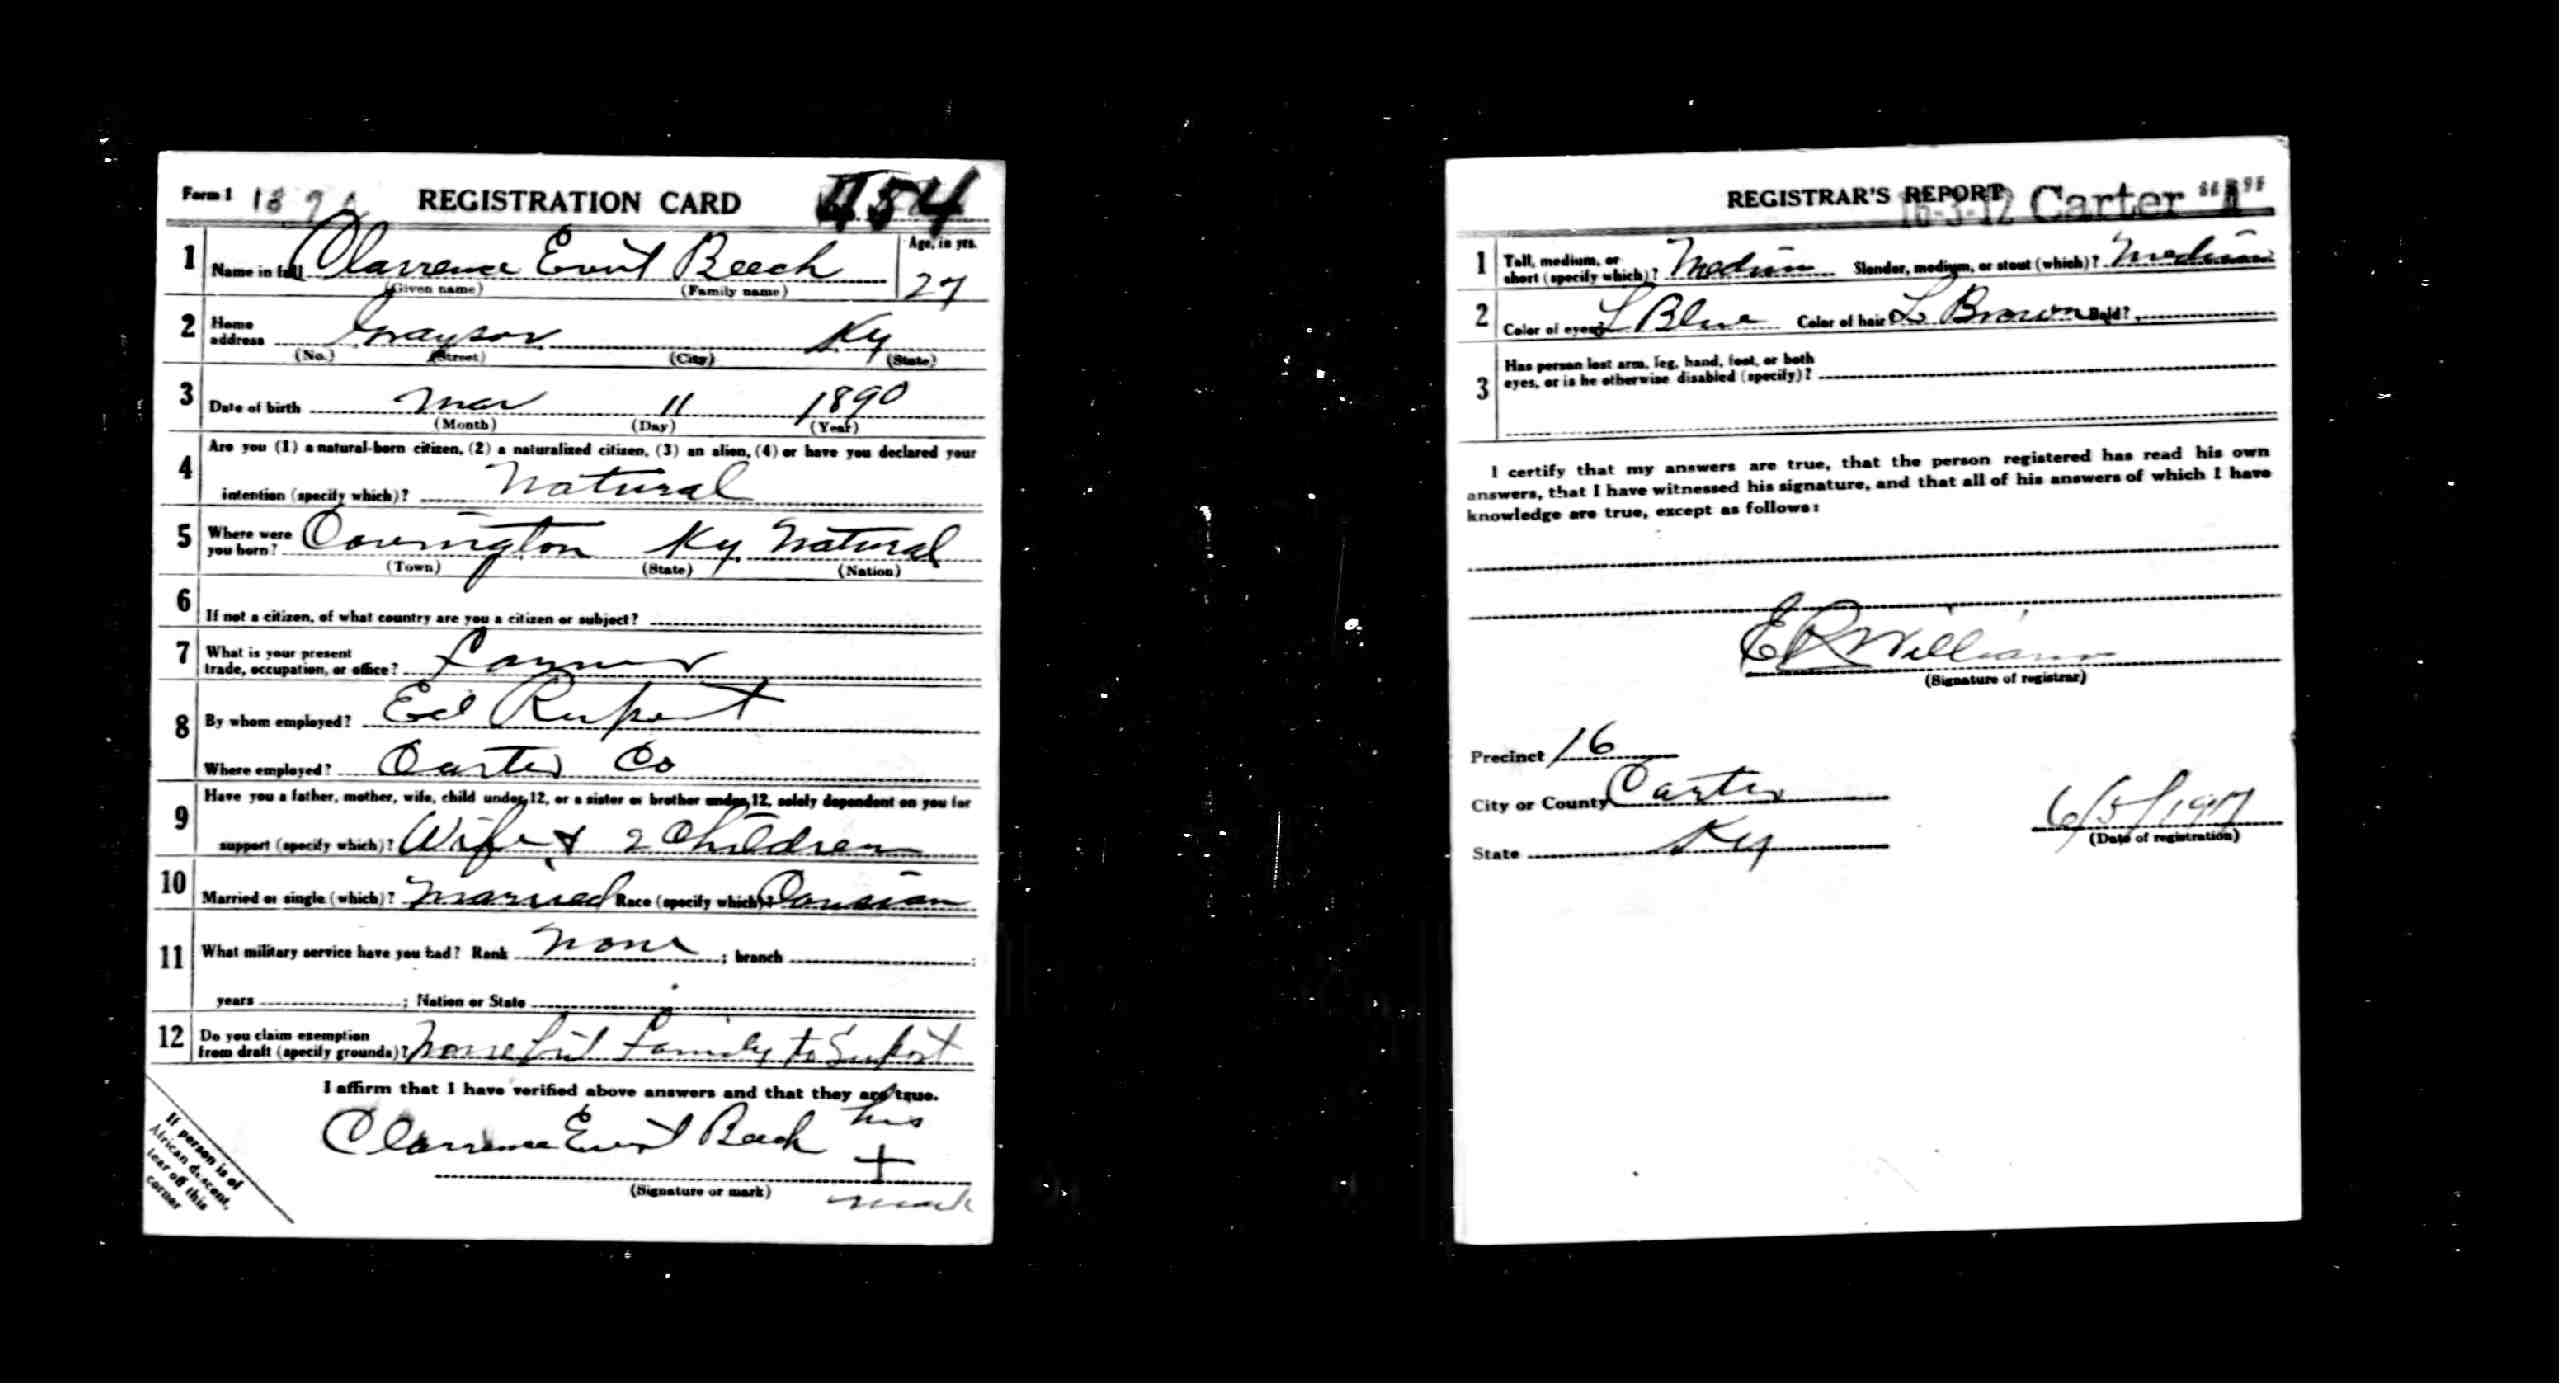 Form 1 REGISTRATION CARD 454
1 Name in full Clarrence Evrit Beech Age, in yrs.
(Given name) (Family name) 27
2 Home address Grayson Ky
(No.) (Street) (City) (State)
3 Date of birth Mar 11 1890
(Month) (Day) (Year)
4 Are you (1) a natural-born citizen, (2) a naturalized citizen, (3) an alien, (4) or have you declared your
intention (specify which)? Natural
5 Where were you born? Covington Ky Natural
(Town) (State) (Nation)
6 If not a citizen, of what country are you a citizen or subject?
7 What is your present
trade, occupation, or office? Farmer
8 By whom employed? Ed Rupert
Where employed? Carter Co
9 Have you a father, mother, wife, child under 12, or a sister or brother under 12, solely dependent on you for
support (specify which)? Wife & 2 Children
10 Married or single (which)? Married Race (specify which)? Causian
11 What military service have you had? Rank None ; branch ;
years ; Nation or State
12 Do you claim exemption
from draft (specify grounds)? Family to Suport
I affirm that I have verified above answers and that they are true.
Clarrence Evrit Beech his
+
(Signature or mark) mark
If person is of
African descent,
tear off this
corner
REGISTRAR'S REPORT 16-3-12 Carter "A"
1 Tall, medium, or
short (specify which)? Medium Slender, medium, or stout (which)? Medium
2 Color of eyes? L Blue Color of hair? L Brown Bald?
3 Has person lost arm, leg, hand, foot, or both
eyes, or is he otherwise disabled (specify)?
I certify that my answers are true, that the person registered has read his own
answers, that I have witnessed his signature, and that all of his answers of which I have
knowledge are true, except as follows:
E R Williams
(Signature of registrar)
Precinct 16
City or County Carter
State Ky
6/5/1917
(Date of registration)